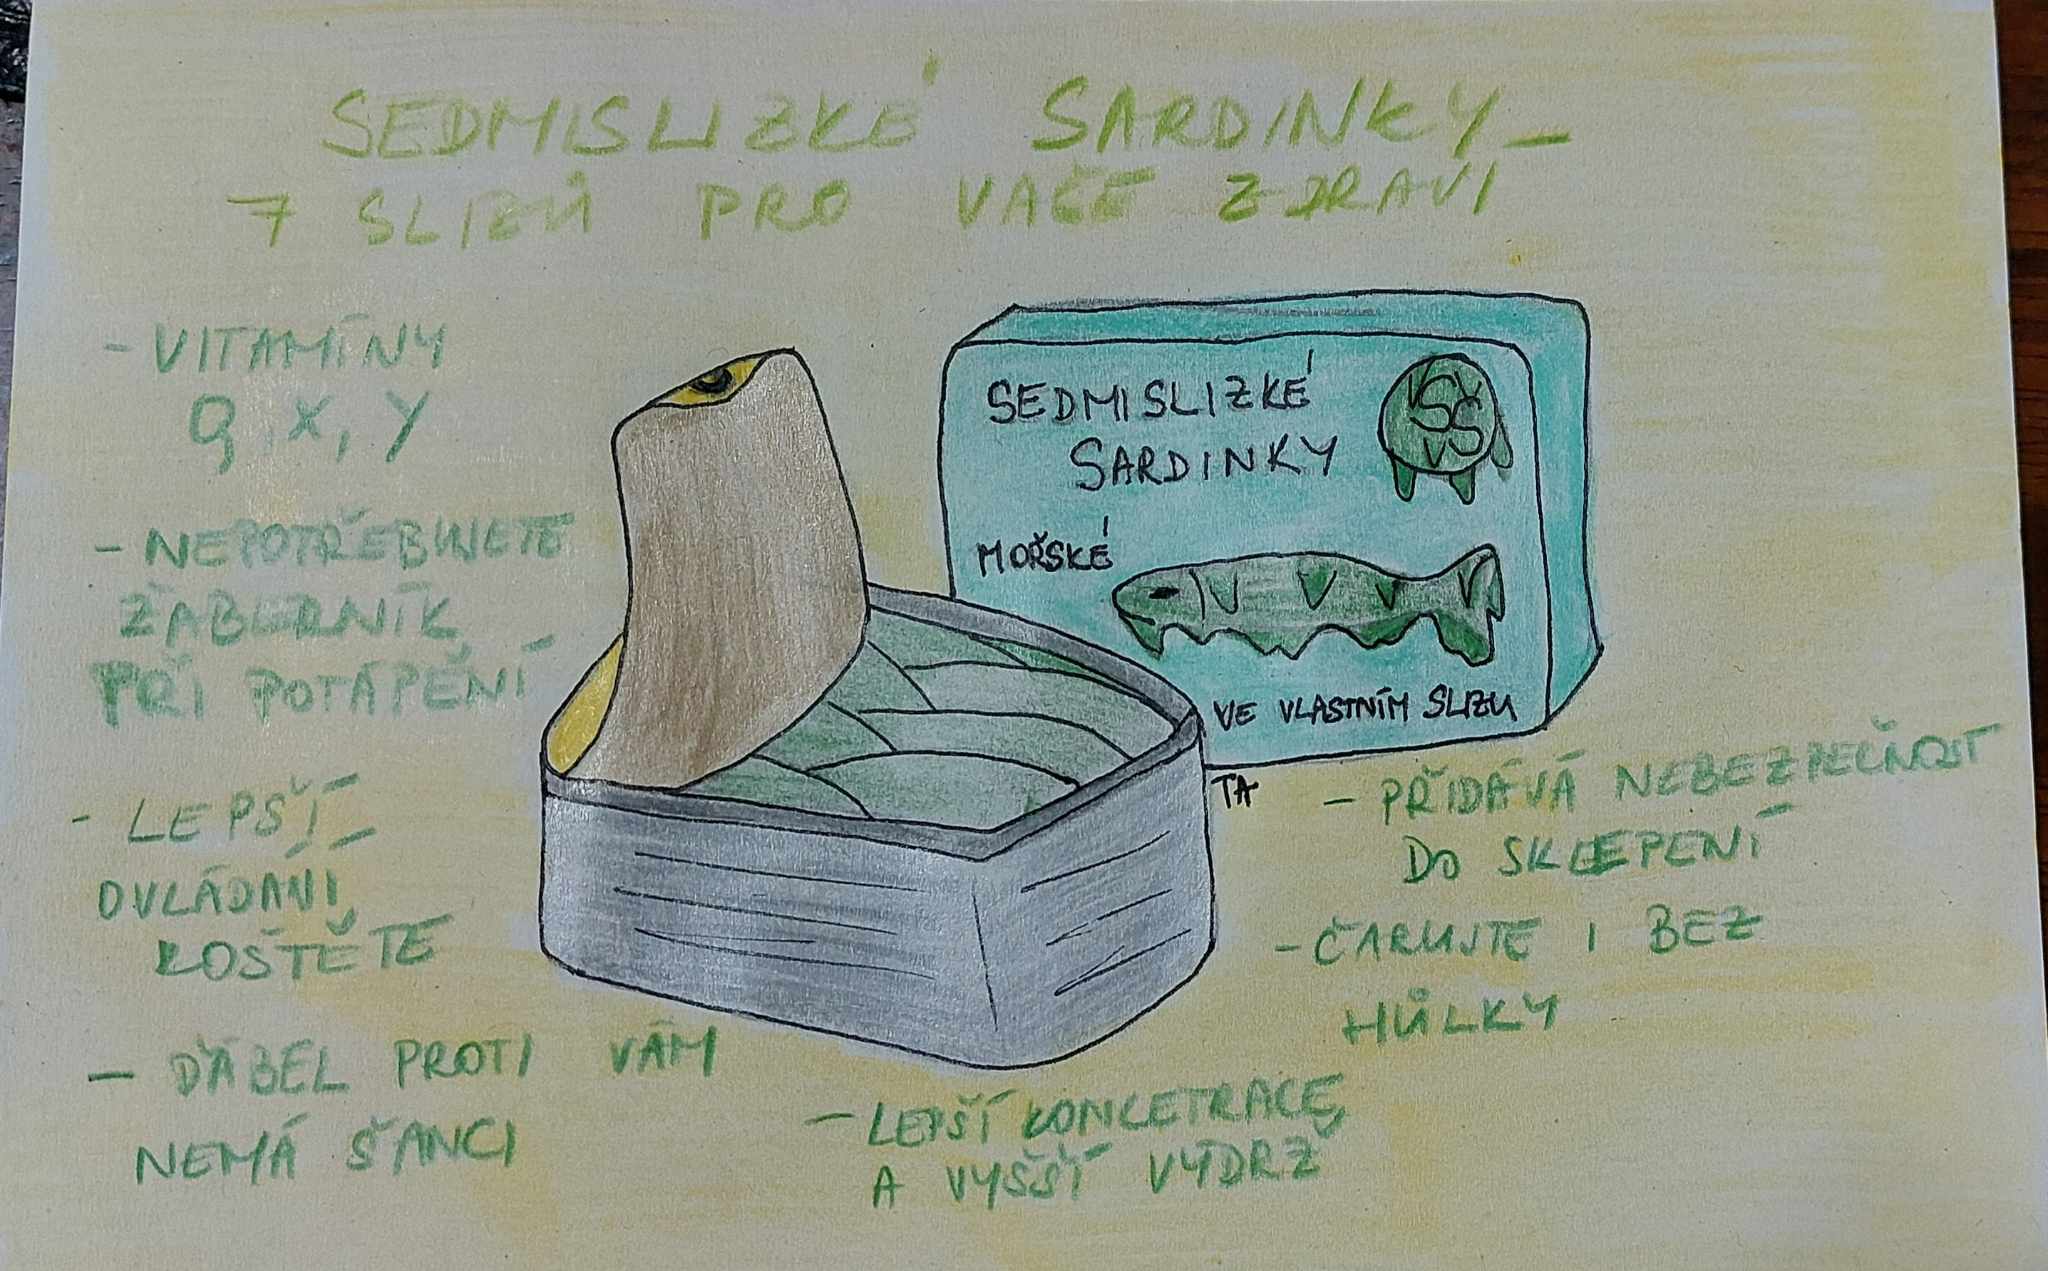 SEDMISLIZKÉ SARDINKY –
7 SLIZŮ PRO VAČE ZDRAVÍ
- VITAMÍNY
9, X, Y
- NEPOTŘEBUJETE
ŽÁBERNÍK
PŘI POTÁPĚNÍ
- LEPŠÍ
OVLÁDÁNÍ
KOŠTĚTE
- ĎÁBEL PROTI VÁM
NEMÁ ŠANCI
SEDMISLIZKÉ
SARDINKY
MOŘSKÉ
VE VLASTNÍM SLIZU
TA
- PŘIDÁVÁ NEBEZPEČNOST
DO SKLEPENÍ
- ČARUJTE I BEZ
HŮLKY
- LEPŠÍ KONCETRACE,
A VYŠŠÍ VÝDRŽ